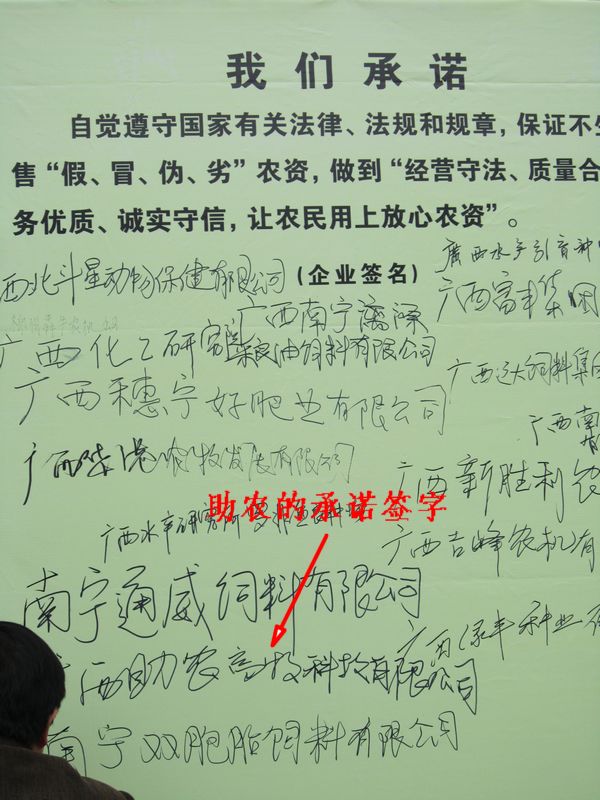 我们承诺
自觉遵守国家有关法律、法规和规章，保证不生
售“假、冒、伪、劣”农资，做到“经营守法、质量合
务优质、诚实守信，让农民用上放心农资”。
(企业签名)
广西水产引育种
西北斗星动物保健有限公司
广西富丰集团
广西南宁漓源
粮油饲料有限公司
广西化工研究院
广西达饲料集
广西穗宁好肥业有限公司
广西南
农牧发展有限公司
广西新胜利农
助农的承诺签字
广西水产研究所
广西吉峰农机有
南宁通威饲料有限公司
广西绿丰种业有
西助农高技科技有限公司
南宁双胞胎饲料有限公司